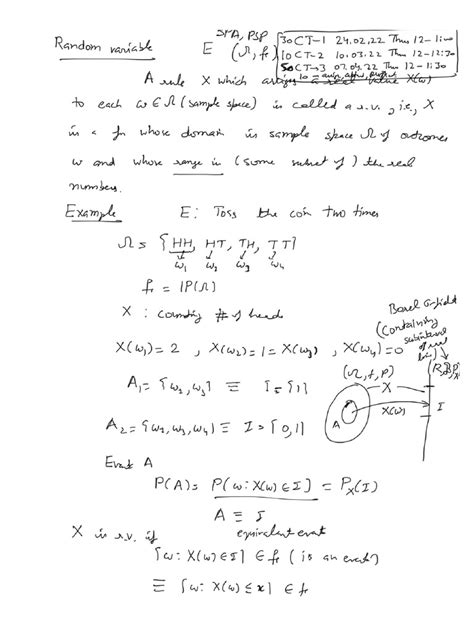 Random variable
E (Ω, f, )
30 CT-1 24.02.22 Thus 12-1:00
10 CT-2 10.03.22 Thus 12-12:30
50 CT-3 07.04.22 Thus 12-1:30
A rule X which assigns a real value X(ω)
to each ω ∈ Ω (sample space) is called a r.v., i.e., X
is a fn whose domain is sample space Ω of outcomes
ω and whose range is (some subset of) the real
numbers.
Example E: Toss the coin two times
Ω = {HH, HT, TH, TT}
ω₁ ω₂ ω₃ ω₄
f = IP(Ω)
X : counting # of heads
X(ω₁)=2 , X(ω₂)=1=X(ω₃) , X(ω₄)=0
Borel σ-field
(Containing
subintervals
of real
line)
(Ω, f, P)
X
X(ω)
A
I
A₁ = {ω₂, ω₃} ≡ I = {1}
A₂ = {ω₂, ω₃, ω₄} ≡ I = [0,1]
Event A
P(A) = P(ω: X(ω) ∈ I) = P_X(I)
A ≡ I
equivalent event
X is r.v. if
{ω: X(ω) ∈ I} ∈ f (is an event)
≡ {ω: X(ω) ≤ x} ∈ f